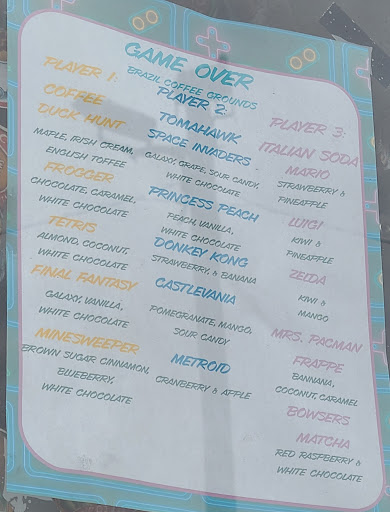 GAME OVER
BRAZIL COFFEE GROUNDS
PLAYER 1:
COFFEE
DUCK HUNT
MAPLE, IRISH CREAM,
ENGLISH TOFFEE
FROGGER
CHOCOLATE, CARAMEL,
WHITE CHOCOLATE
TETRIS
ALMOND, COCONUT,
WHITE CHOCOLATE
FINAL FANTASY
GALAXY, VANILLA,
WHITE CHOCOLATE
MINESWEEPER
BROWN SUGAR CINNAMON,
BLUEBERRY,
WHITE CHOCOLATE
PLAYER 2:
TOMAHAWK
SPACE INVADERS
GALAXY, GRAPE, SOUR CANDY,
WHITE CHOCOLATE
PRINCESS PEACH
PEACH, VANILLA,
WHITE CHOCOLATE
DONKEY KONG
STRAWBERRY, & BANANA
CASTLEVANIA
POMEGRANATE, MANGO,
SOUR CANDY
METROID
CRANBERRY & APPLE
PLAYER 3:
ITALIAN SODA
MARIO
STRAWBERRY &
PINEAPPLE
LUIGI
KIWI &
PINEAPPLE
ZELDA
KIWI &
MANGO
MRS. PACMAN
FRAPPE
BANNANA,
COCONUT, CARAMEL
BOWSERS
MATCHA
RED RASPBERRY &
WHITE CHOCOLATE